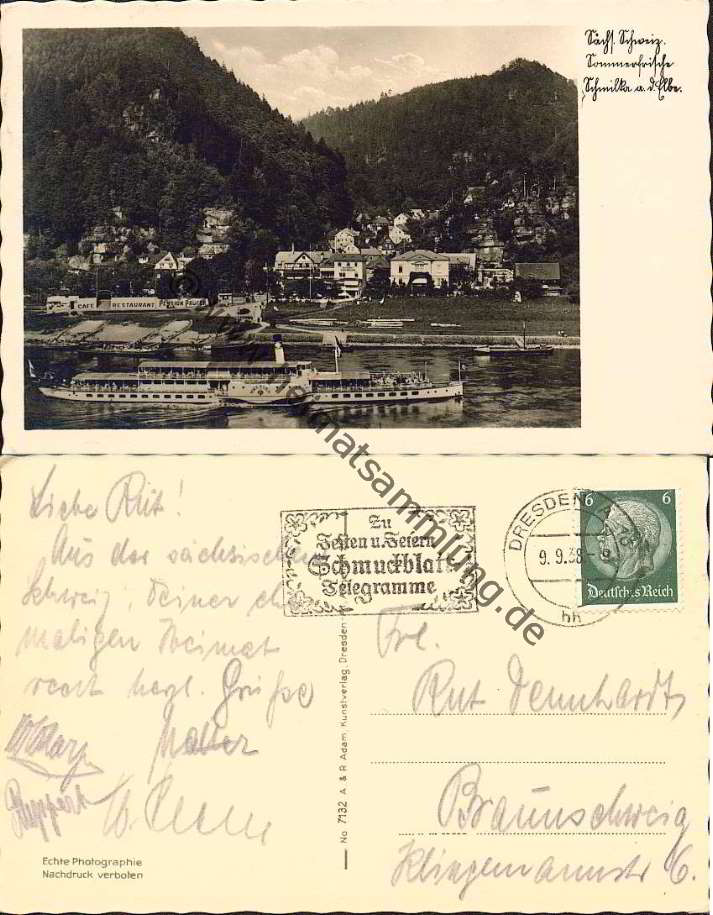 Sächs. Schweiz.
Sommerfrische
Schmilka a. d. Elbe.
CAFÉ RESTAURANT PENSION
www.heimatsammlung.de
Liebe Rut!
Aus der sächsischen
Schweiz, Deiner ehe
maligen Heimat
recht herzl. Grüße
Ruppert
Echte Photographie
Nachdruck verboten
No 7132 A & R Adam, Kunstverlag, Dresden
Zu
Festen u. Feiern
Schmuckblatt
Telegramme
DRESDEN A
9.9.38
hh
6 6
Deutsches Reich
Frl.
Rut Dennhardt
Braunschweig
Klingemannstr. 6.